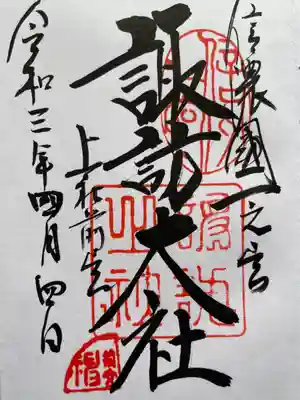 信濃國一之宮
諏訪大社
上社前宮
令和三年四月四日